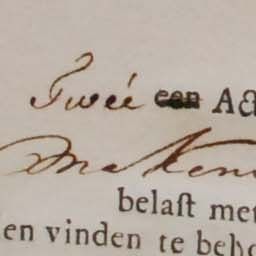 Twéé een Aa
belaſt met
en vinden te beho